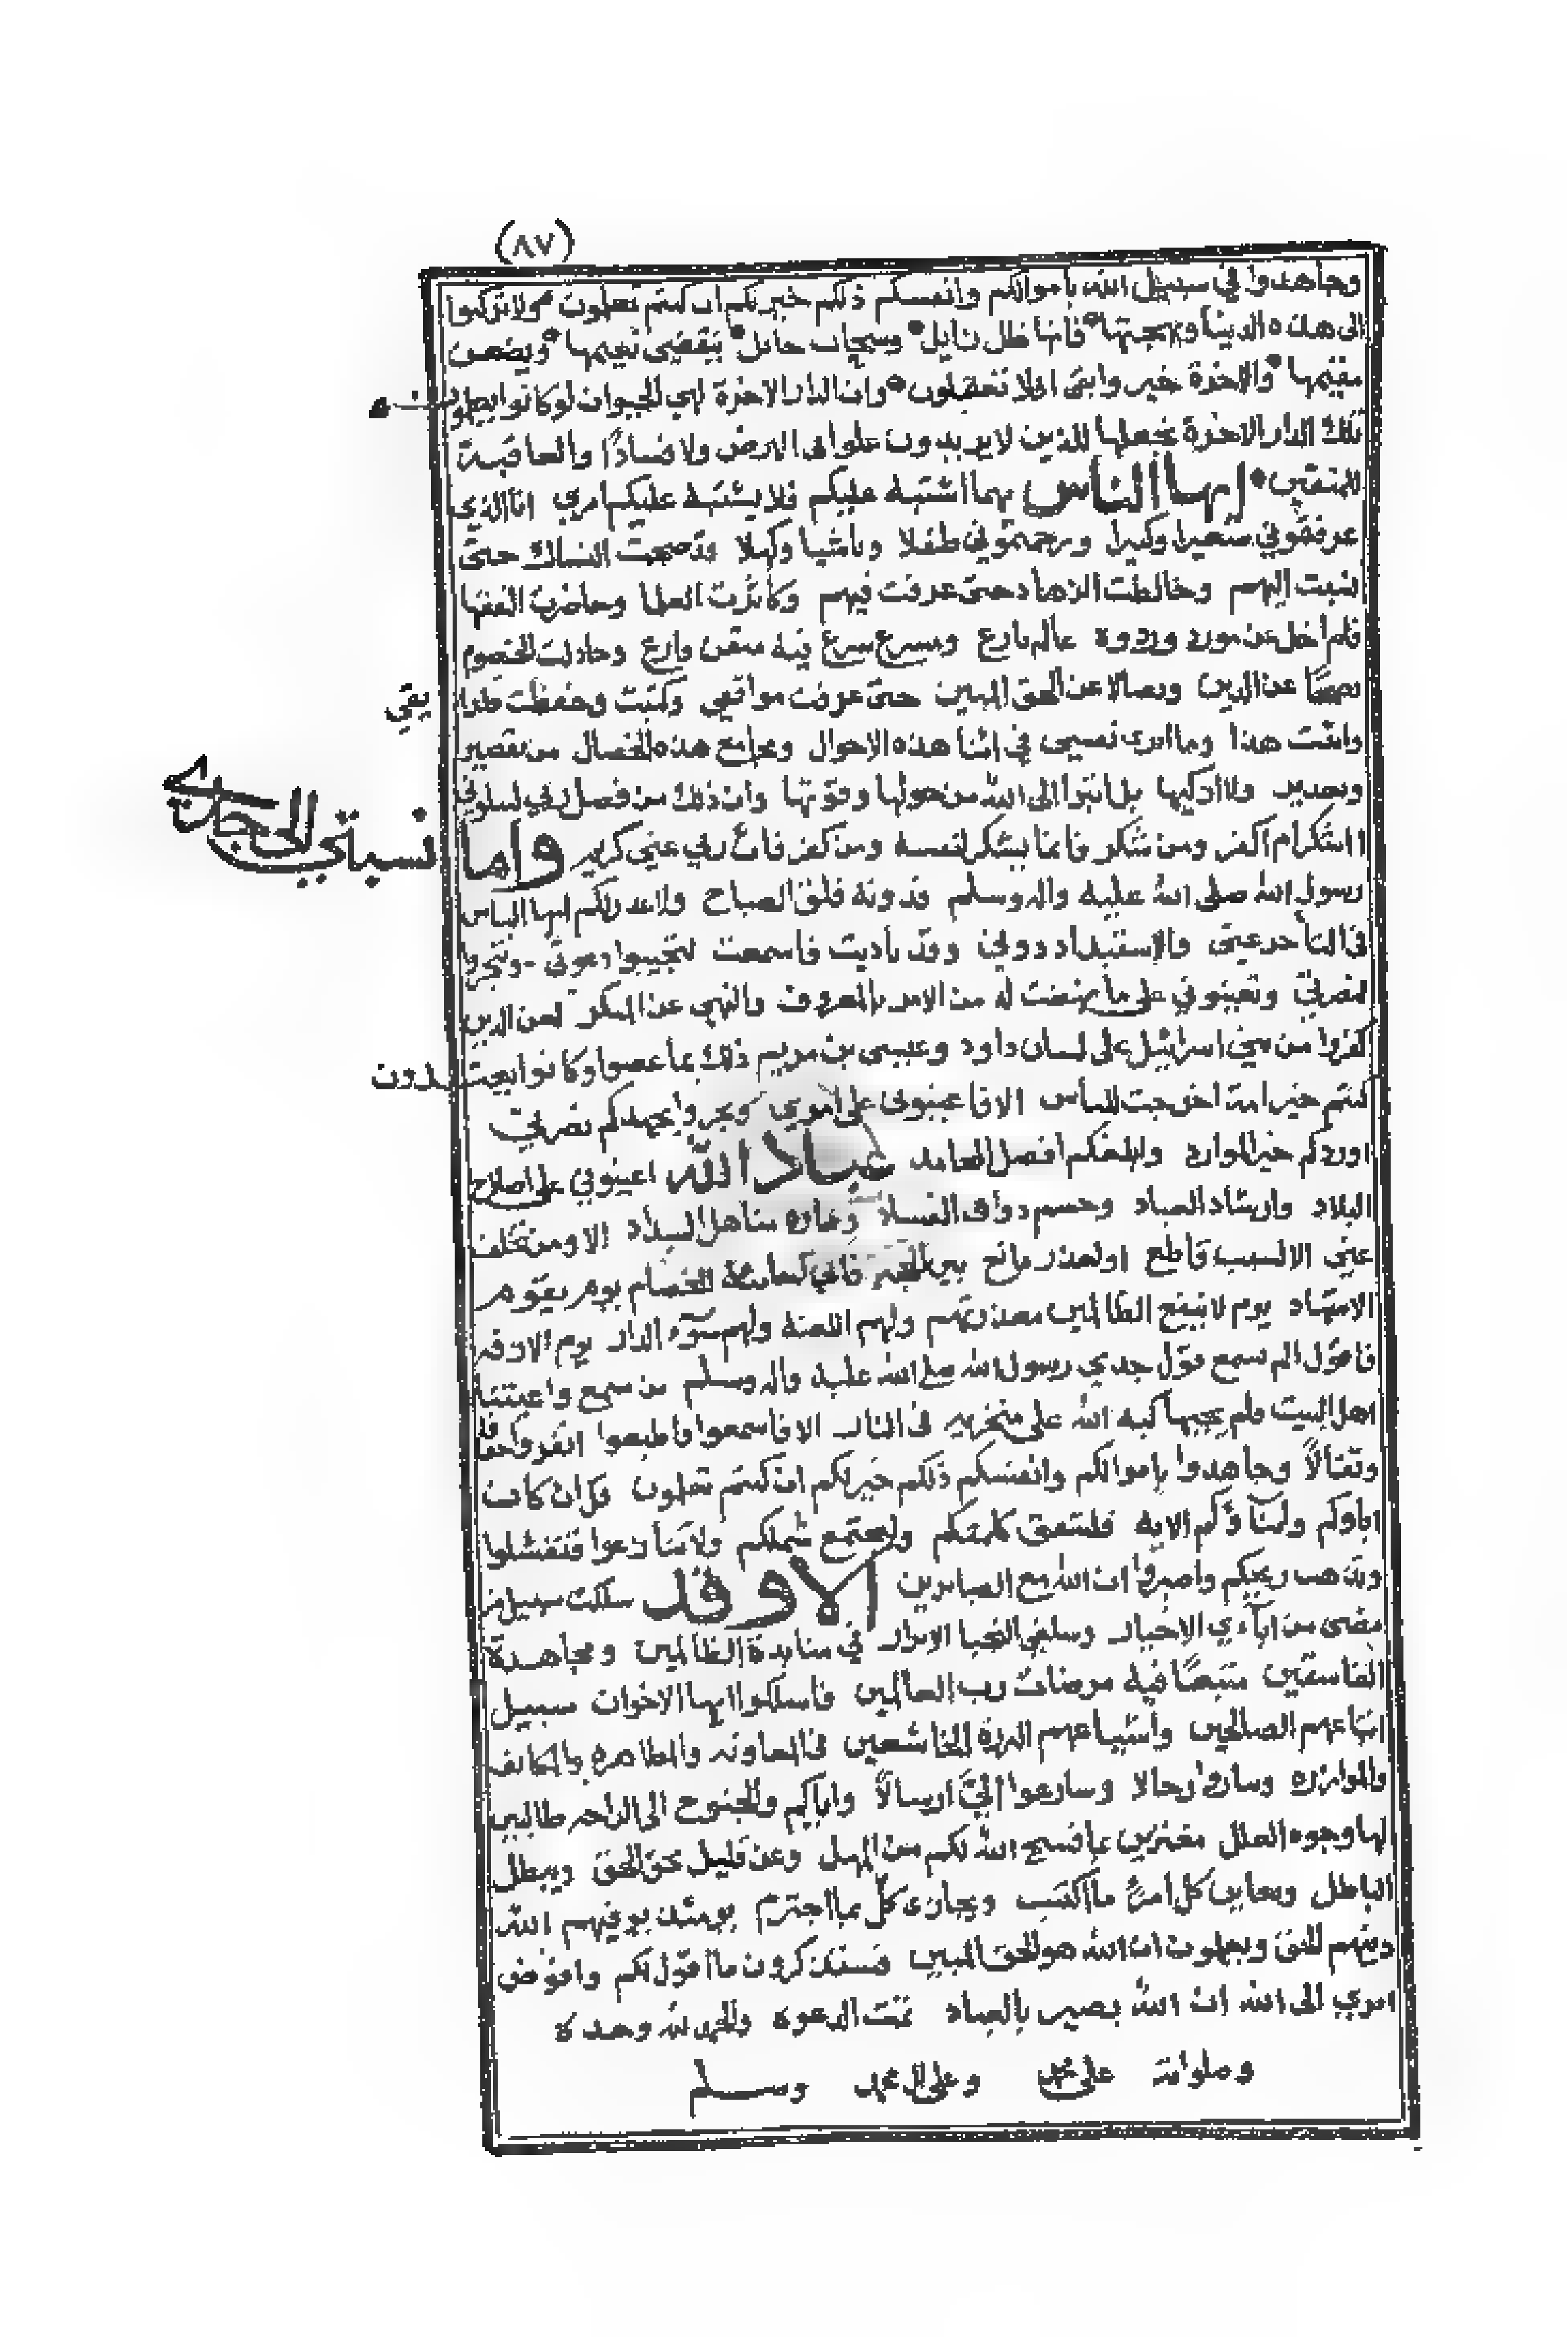 (٨٧)
وجاهدوا في سبيل الله باموالكم وانفسكم ذلكم خير لكم ان كنتم تعلمون ولا تركنوا
الى هذه الدنيا وبهجتها فانها ظل زايل وسحاب حايل ينقضي نعيمها ويضعن
مقيمها والاخرة خير وابقى افلا تعقلون وان الدار الاخرة لهي الحيوان لو كانوا يعلمون
تلك الدار الاخرة نجعلها للذين لا يريدون علوا في الارض ولا فسادًا والعاقبة
للمتقين ايها الناس مهما اشتبه عليكم فلا يشتبه عليكم امري انا الذي
عرفتموني صغيرا وكبيرا وطفلا وناشيا وكهلا النساك حتى
اليهم وخالطت الزهاد حتى عرفت فيهم وكاثرت العلما وحاضرت الفقها
فلم اخل عن مورد ورده عالم بارع ومشرع شرع فيه متقن وادع وجادلت الخصوم
عن الدين ونضالا عن الحق المبين حتى عرفت مواقفي وكتبت وحفظت طرا يقي
هذا وما ابري نفسي في اثنا هذه الاحوال ومجامع هذه الخصال من تقصير
ولا ازكيها بل ابرا الى الله من حولها وقوتها وان ذلك من فضل ربي ليبلوني
ااشكر ام اكفر ومن شكر فانما يشكر لنفسه ومن كفر فان ربي غني كريم واما نسبتي الى جدي
رسول الله صلى الله عليه واله وسلم فدونه فلق الصباح ولا عذر لكم ايها الناس
في التاخر عني والاستبداد دوني وقد ناديت فاسمعت لتجيبوا دعوتي
لنصرتي وتعينوني على ما نهضت له من الامر بالمعروف والنهي عن المنكر لعن الذين
كفروا من بني اسرائيل على لسان داود وعيسى بن مريم ذلك بما عصوا وكانوا يعتدون
كنتم خير امة اخرجت للناس الا فاعينوني على امري بجهدكم نصرتي
اوردكم خير الموارد وابلغكم افضل المحامد عباد الله اعينوني على اصلاح
البلاد وارشاد العباد وحسم دواعي الفساد وعمارة مناهل السداد الا ومن تخلف
عني الا لسبب قاطع او لعذر مانع بين الحجة فاني الخصام يوم يقوم
الاشهاد يوم لا ينفع الظالمين معذرتهم ولهم اللعنة ولهم سوء الدار يوم الازفه
فاقول الم تسمع قول جدي رسول الله صلى الله عليه واله وسلم من سمع واعيتنا
اهل البيت فلم يجبها كبه الله على منخريه في النار الا فاسمعوا واطيعوا انفروا خفافا
وثقالًا وجاهدوا باموالكم وانفسكم ذلكم خير لكم ان كنتم تعلمون قل ان كان
اباؤكم وابناؤكم الايه فلتتفق كلمتكم وليجتمع شملكم ولا تنازعوا فتفشلوا
وتذهب ريحكم واصبروا ان الله مع الصابرين الا وقد سلكت سبيل من
مضى من اباءي الاخيار وسلفي النجبا الابرار في منابذة الظالمين ومجاهدة
الفاسقين فيه مرضات رب العالمين فاسلكوا ايها الاخوان سبيل
اتباعهم الصالحين واشياعهم البررة الخاشعين في المعاونه والمظاهره والمكانفه
والموازره وسارعوا رجالا وسارعوا الي ارسالًا واياكم والجنوح الى الراحه طالبين
لها وجوه العلل مغترين بما فسح الله لكم من المهل وعن قليل يحق الحق ويبطل
الباطل ويعاين كل امرئ ما اكتسب ويجازى كل بما اجترم يومئذ يوفيهم الله
دينهم الحق ويعلمون ان الله هو الحق المبين فستذكرون ما اقول لكم وافوض
امري الى الله ان الله بصير بالعباد تمت الدعوه والحمد لله وحده
وصلواته على محمد وعلى ال محمد وسلم